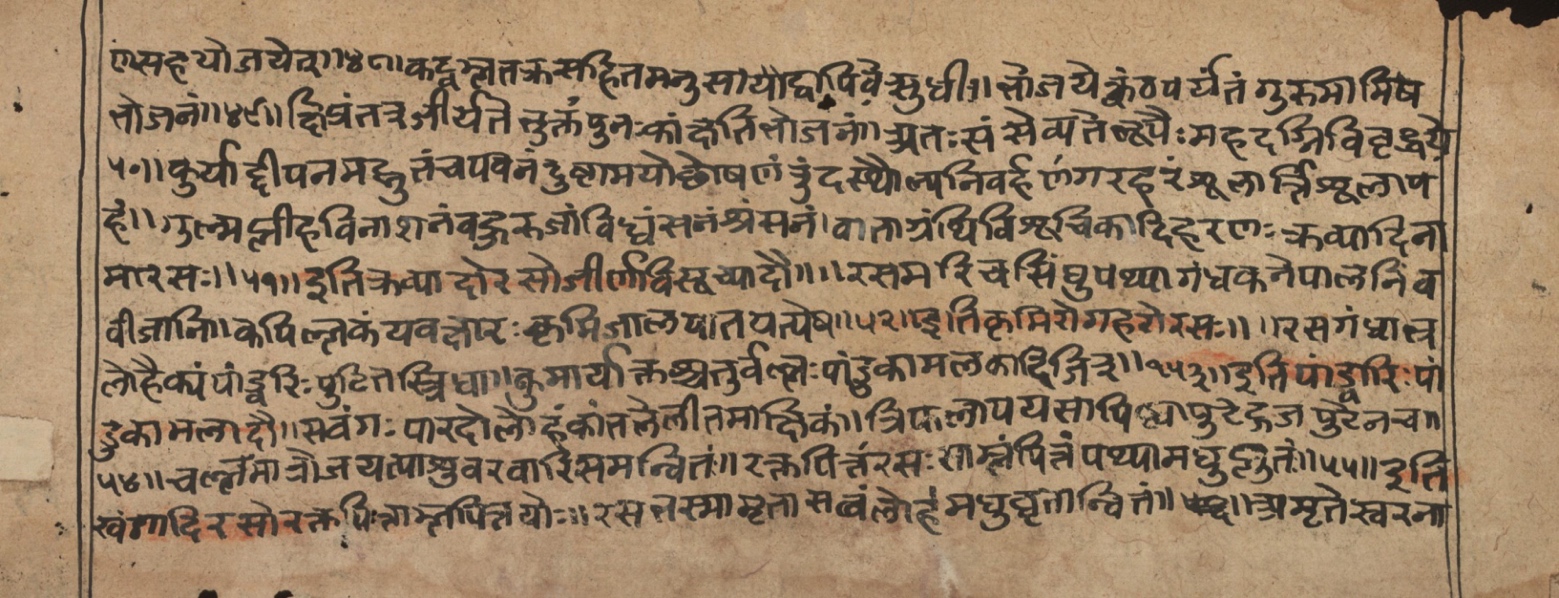 णसहयोजयेत्॥४८॥कट्वम्लतक्रसहितमनुसायोद्वापिवेत्सुधीः॥भोजयेत्कंठपर्यंतंगुरुमामिष
भोजनं॥४९॥क्षिप्रंतत्रजीर्यतेभुक्तंपुनःकांक्षतिभोजनं॥अतःसंसेव्यतेनृपैःमहदग्निविवृद्धये
५०॥कुर्याद्दीपनमद्भुतंचपवनंदुष्टामयोछोषणंतुंदस्थौल्यनिबर्हणंगरहरंशूलार्त्तिशूलाप
हं॥गुल्मप्लीहविनाशनंबहुरुजांविध्वंसनंश्रंसनं।वाताग्रंथिविशूचिकादिहरणःक्रव्यादिना
मारसः॥५१॥इतिक्रव्यादोरसोजीर्णविसूच्यादौ॥॥रसमरिचसिंधुपथ्यागंधकनेपालनिंब
बीजानि॥कपिल्लकंयवक्षारःकृमिजालघातयत्येष॥५२॥इतिकृमिरोगहरोरसः॥॥रसगंधाभ्र
लोहैक्यंपांडूरिःपुटितस्त्रिधा॥कुमार्याक्तश्चतुर्वल्लःपांडुकामलकादिजित्॥५३॥इतिपांडूारिःपां
डुकामलादौ॥सवंगःपारदोलोहंकांतलेलीतमाक्षिकं॥त्रिफलापयसापिष्ट्वापुटेद्गजपुटेनच॥
५४॥वल्लमात्रोजयत्याशुवरवारिसमन्वितं॥रक्तपित्तंरसःसाम्लंपित्तंपथ्यामधुप्लुतंः॥५५॥इति
खंगादिरसोरक्तपित्ताम्लपित्तयोः॥रसभस्मामृतासत्वंलोहंमधुघृतान्वितं॥॥अमृतेस्वरना